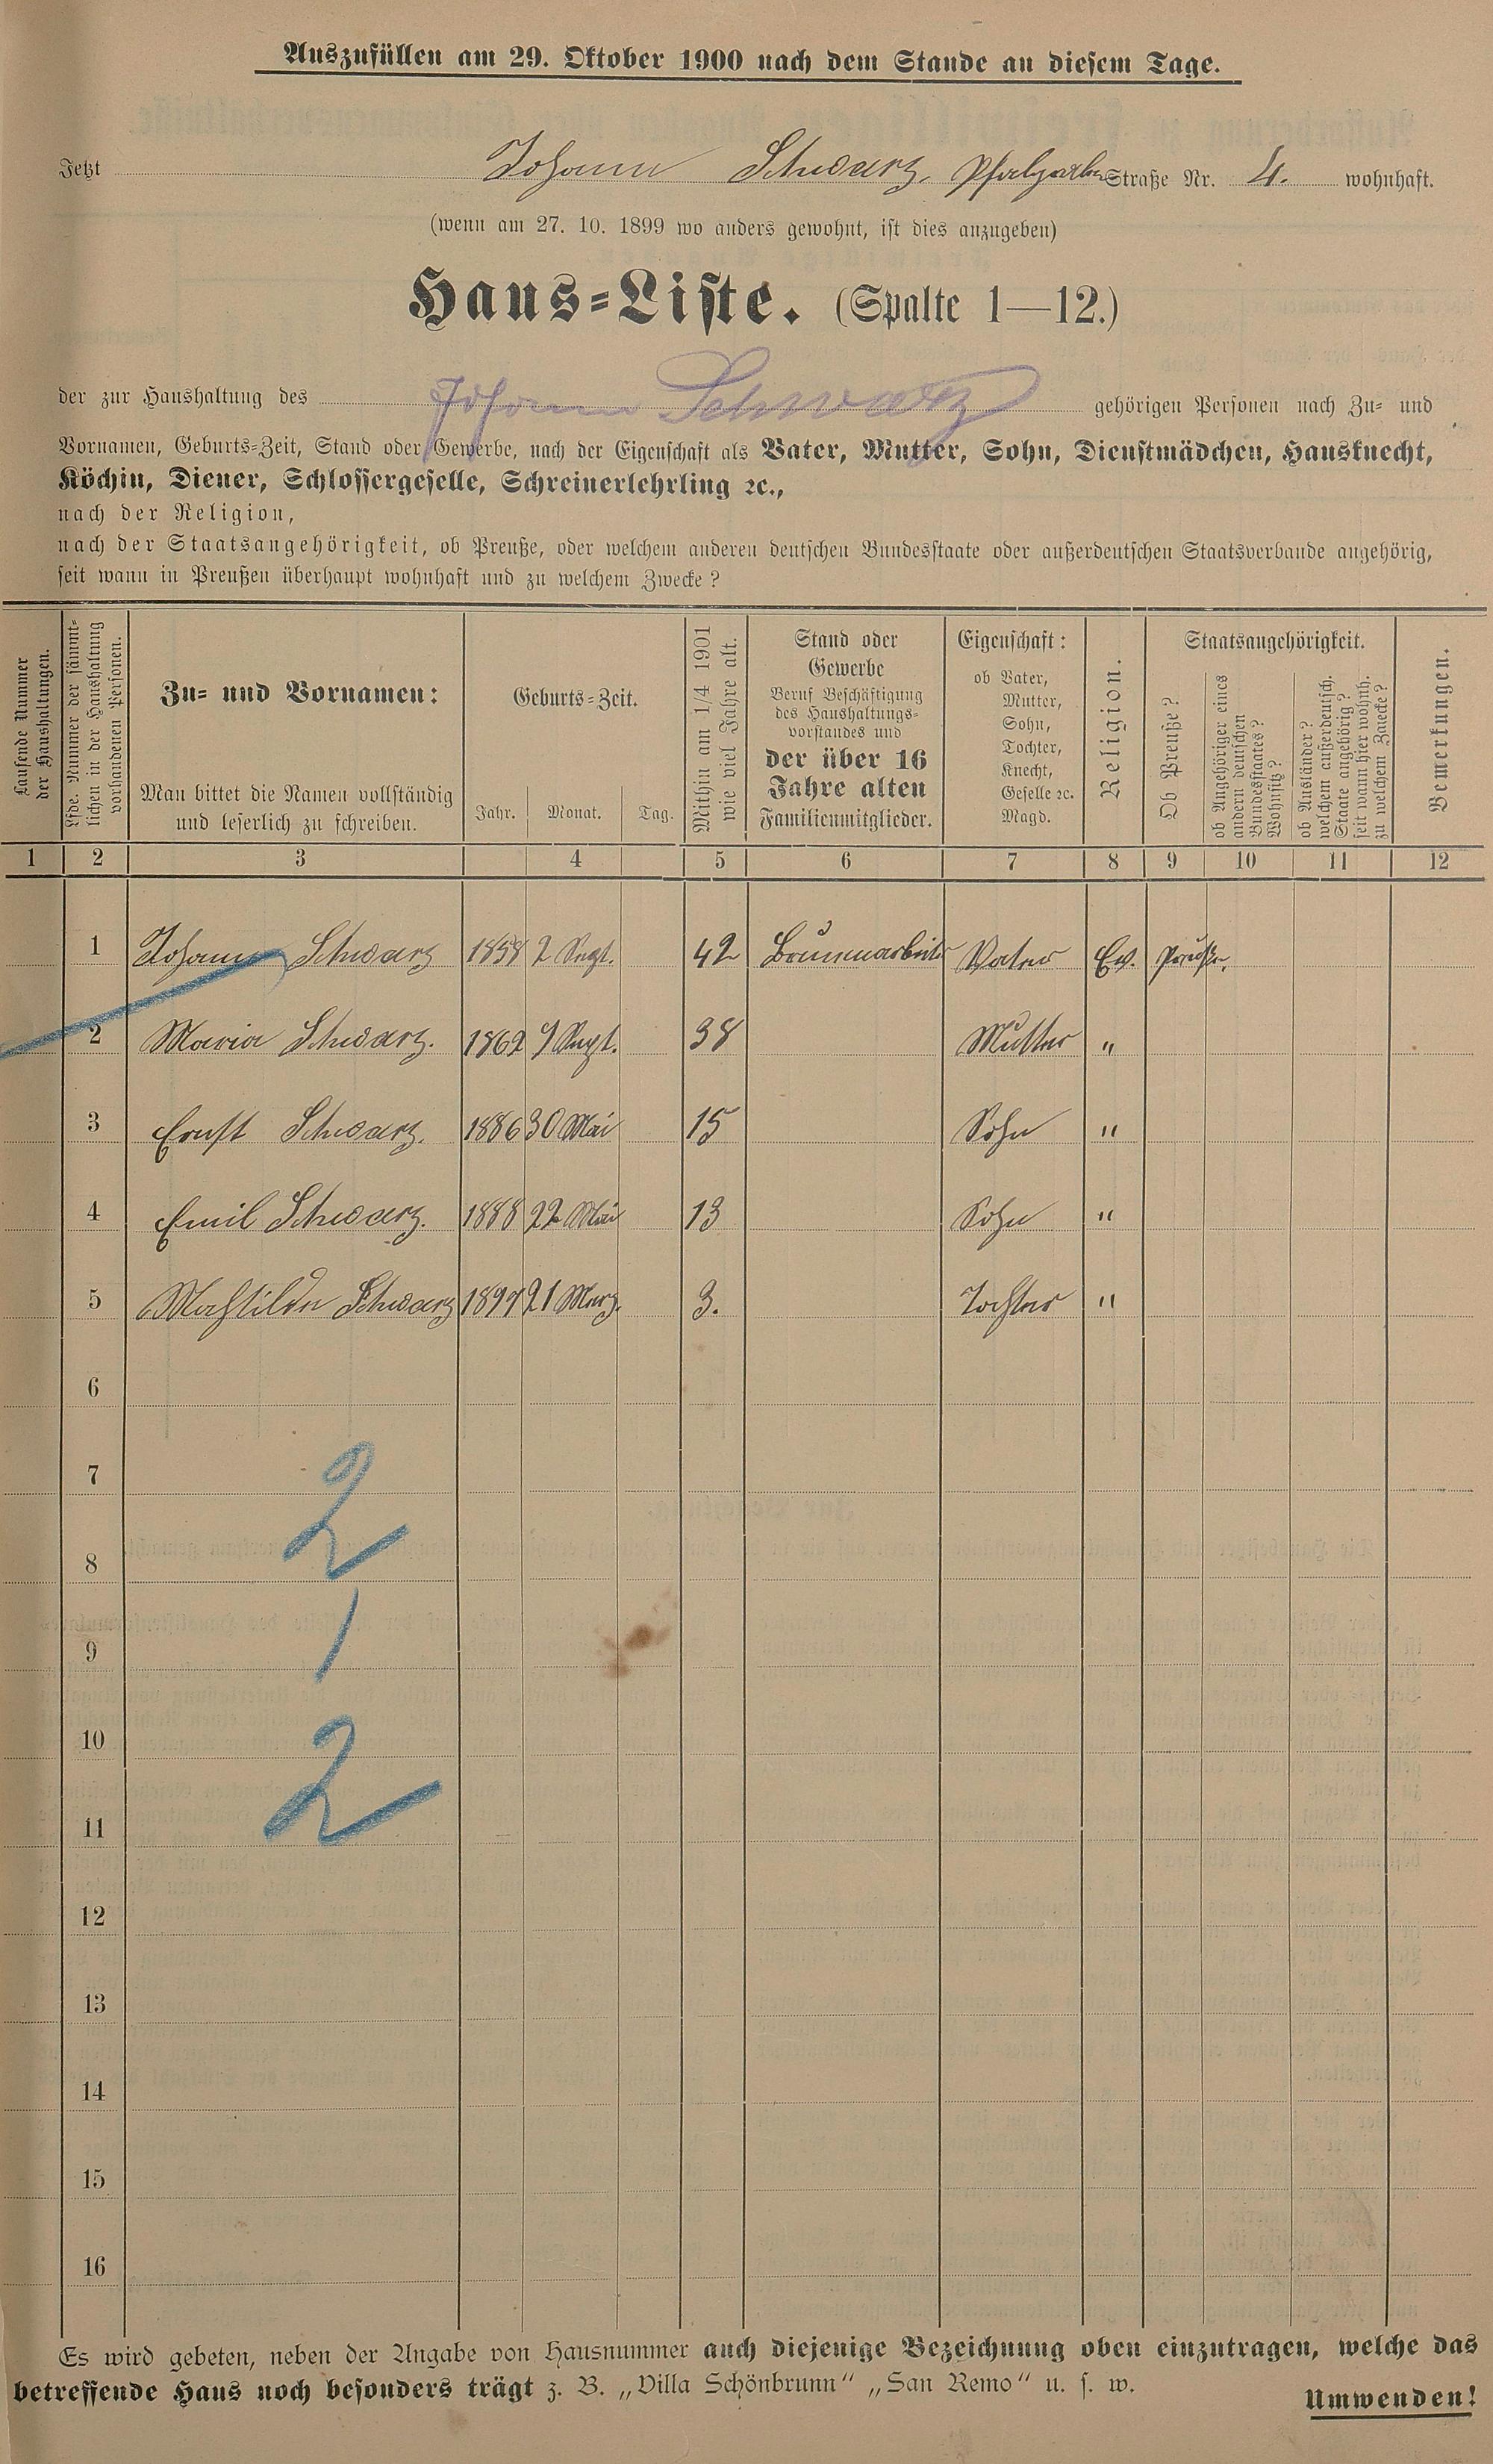 Auszufüllen am 29. Oktober 1900 nach dem Stande an diesem Tage.
Jetzt Johann Schwarz, Straße Nr. 4. wohnhaft.
(wenn am 27. 10. 1899 wo anders gewohnt, ist dies anzugeben)
Haus-Liste. (Spalte 1—12.)
der zur Haushaltung des Johann Schwarz gehörigen Personen nach Zu- und
Vornamen, Geburts-Zeit, Stand oder Gewerbe, nach der Eigenschaft als Vater, Mutter, Sohn, Dienstmädchen, Hausknecht,
Köchin, Diener, Schlossergeselle, Schreinerlehrling ꝛc.,
nach der Religion,
nach der Staatsangehörigkeit, ob Preuße, oder welchem anderen deutschen Bundesstaate oder außerdeutschen Staatsverbande angehörig,
seit wann in Preußen überhaupt wohnhaft und zu welchem Zwecke?
Laufende Nummer
der Haushaltungen.
Lfde. Nummer der sämmt-
lichen in der Haushaltung
vorhandenen Personen.
Zu- und Vornamen:
Man bittet die Namen vollständig
und leserlich zu schreiben.
Geburts-Zeit.
Jahr. Monat. Tag.
Mithin am 1/4 1901
wie viel Jahre alt.
Stand oder
Gewerbe
Beruf Beschäftigung
des Haushaltungs-
vorstandes und
der über 16
Jahre alten
Familienmitglieder.
Eigenschaft:
ob Vater,
Mutter,
Sohn,
Tochter,
Knecht,
Geselle ꝛc.
Magd.
Religion.
Staatsangehörigkeit.
Ob Preuße?
ob Angehöriger eines
andern deutschen
Bundesstaates?
Wohnsitz?
ob Ausländer?
welchem außerdeutsch.
Staate angehörig?
seit wann hier wohnh.
zu welchem Zwecke?
Bemerkungen.
1 2 3 4 5 6 7 8 9 10 11 12
1 Johann Schwarz 1858 2 Sept. 42 Brunnarbeiter Vater Ev. Preuße.
2 Maria Schwarz. 1862 38 Mutter "
3 Ernst Schwarz. 1886 30 Mai 15 Sohn "
4 Emil Schwarz. 1888 22 Mai 13 Sohn "
5 Mathilde Schwarz 1897 21 März. 3. Tochter "
6
7
2
8
9
1
10
2
11
12
13
14
15
16
Es wird gebeten, neben der Angabe von Hausnummer auch diejenige Bezeichnung oben einzutragen, welche das
betreffende Haus noch besonders trägt z. B. „Villa Schönbrunn“ „San Remo“ u. s. w.
Umwenden!